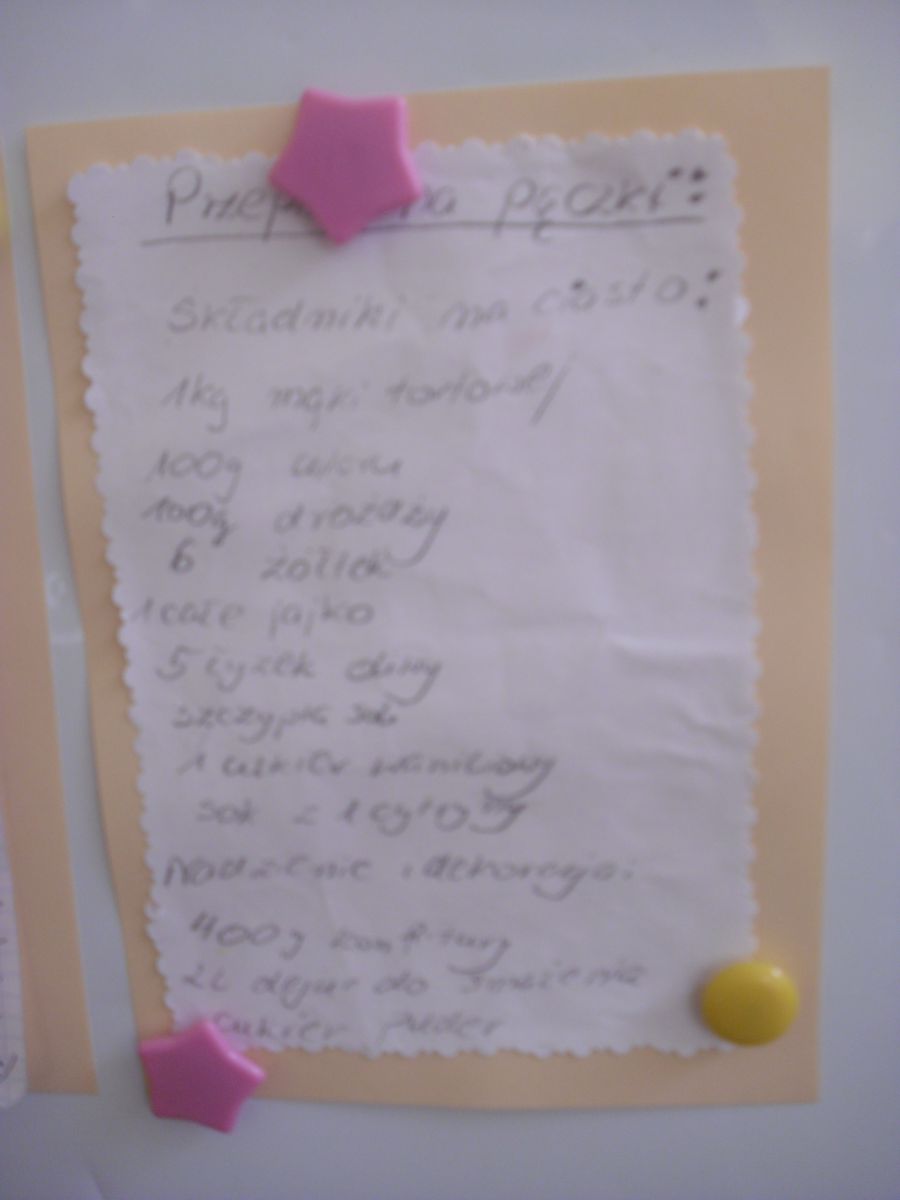 Przep na pączki:
Składniki na ciasto:
1kg mąki tortowej
100g cukru
100g drożdży
6 żółtek
1 całe jajko
5 łyżek
szczypta soli
1 cukier waniliowy
sok z 1 cytryny
Nadzienie i dekoracja:
400g konfitury
2L do smażenia
cukier puder